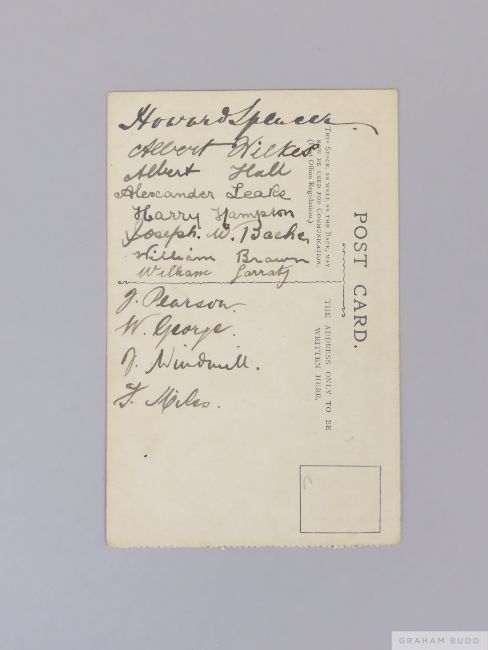 Howard Spencer
Albert Wilkes
Albert Hall
Alexander Leake
Harry Hampton
Joseph. W. Bache
William Brawn
William Garraty
J. Pearson.
W. George.
J. Windmill.
F. Miles.
POST CARD.
THIS SPACE, AS WELL AS THE BACK, MAY
NOW BE USED FOR COMMUNICATION.
(Post Office Regulations.)
THE ADDRESS ONLY TO BE
WRITTEN HERE.
GRAHAM BUDD